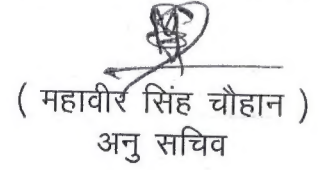 ( महावीर सिंह चौहान )
अनु सचिव